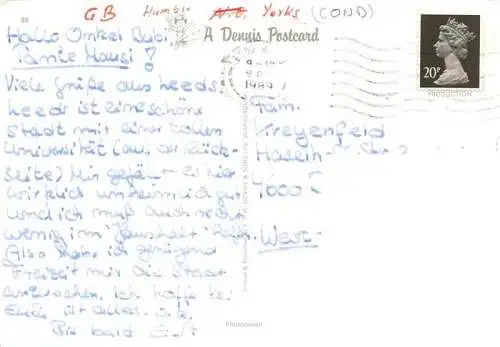 GB Humbs. N.O. Yorks (COND)
A Dennis Postcard
20P
Hallo Onkel Bubi
Tante Hausi!
Viele Grüße aus Leeds.
Leeds ist eine schöne
Stadt mit einer tollen
Universität (auf der Rück-
seite) Mir gefällt es hier
wirklich unheimlich gut
und ich muß auch recht
wenig im "Haushalt" helfen
Also habe ich genügend
Freizeit mir die Stadt
anzusehen. Ich hoffe bei
Euch ist alles o.k.
Bis bald
1989
Fam.
Kreyenfeld
4600
West-
Photocolour